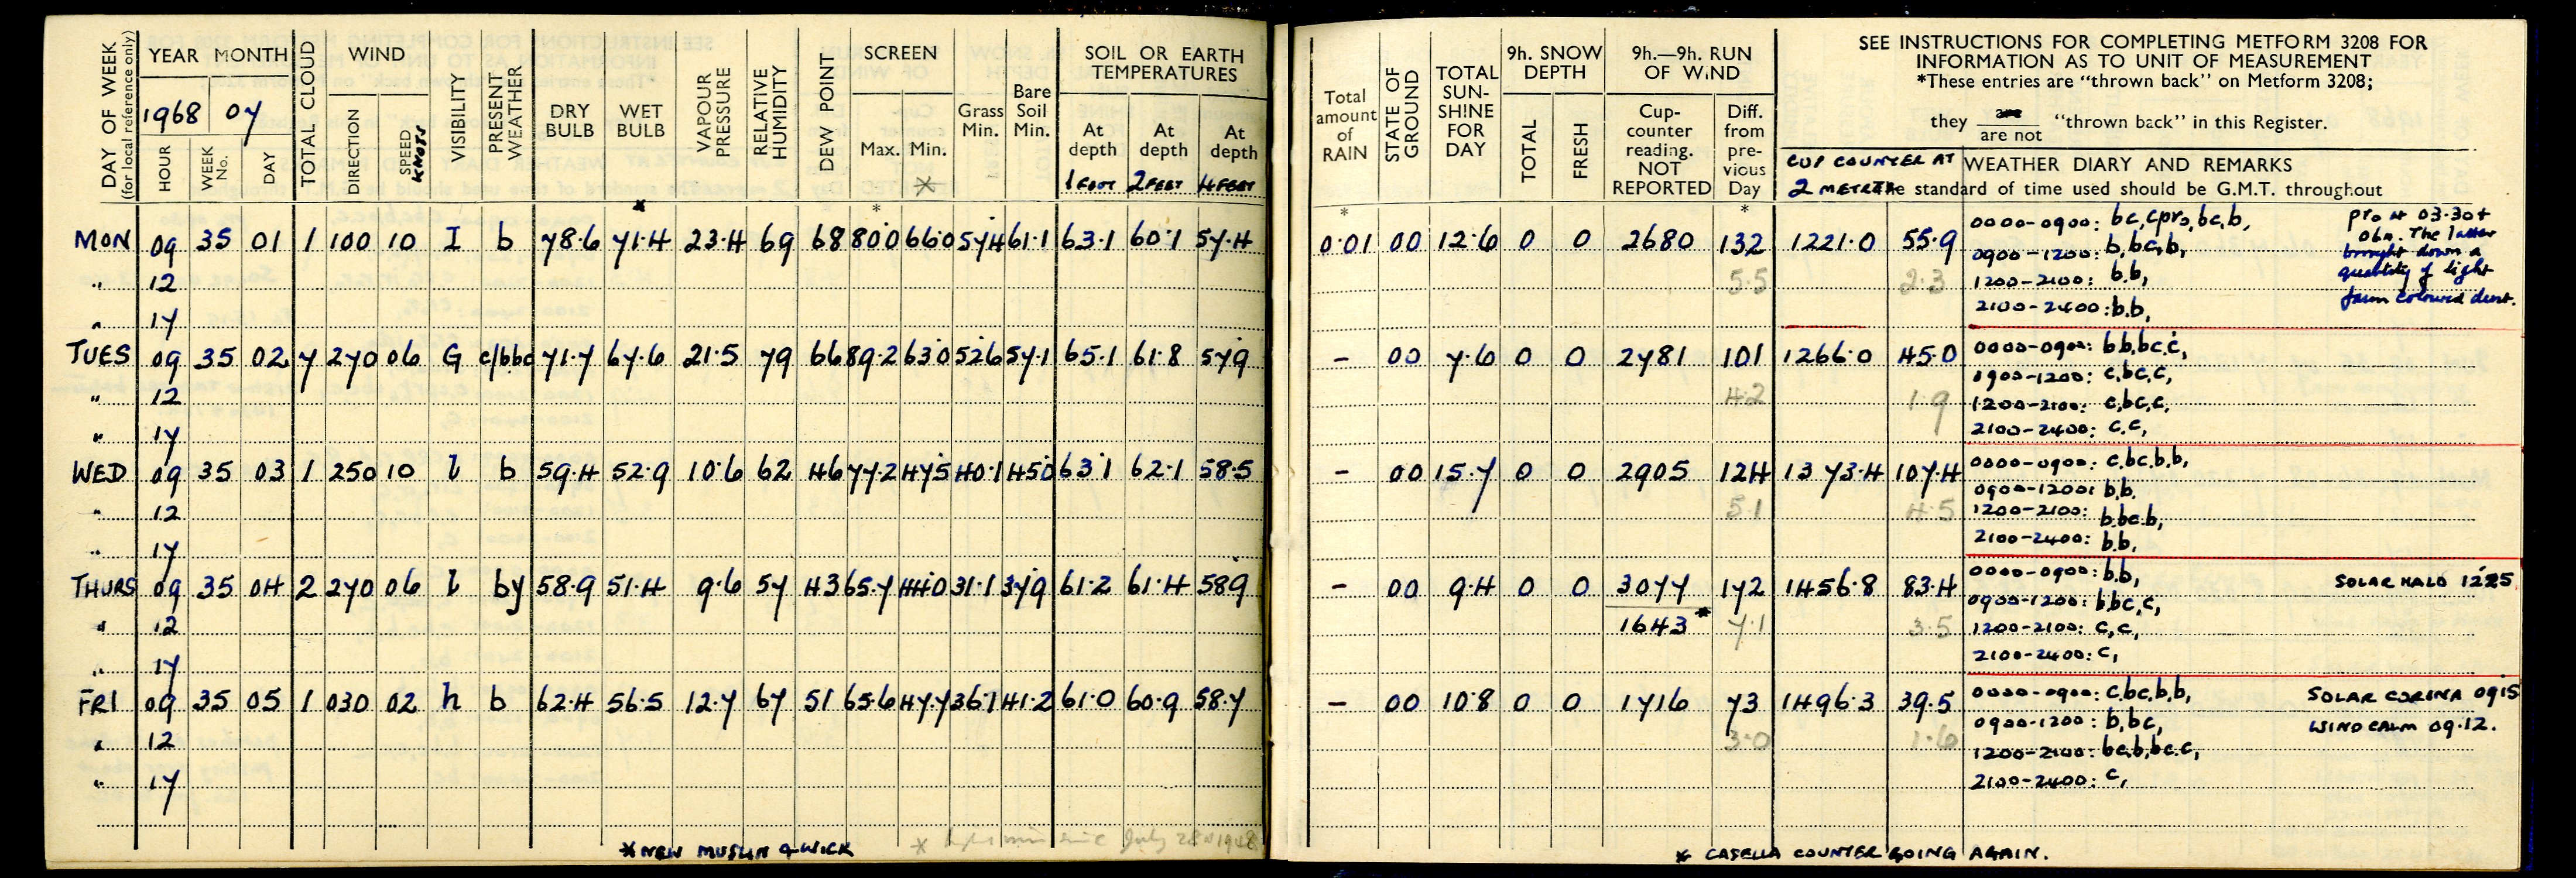 DAY OF WEEK (for local reference only)
YEAR MONTH
1968 07
HOUR WEEK No. DAY
TOTAL CLOUD
WIND
DIRECTION SPEED KNOTS
VISIBILITY
PRESENT WEATHER
DRY BULB
WET BULB
VAPOUR PRESSURE
RELATIVE HUMIDITY
DEW POINT
SCREEN
Max. Min.
Grass Min.
Bare Soil Min.
SOIL OR EARTH TEMPERATURES
At depth 1 FOOT
At depth 2 FEET
At depth 4 FEET
MON 09 35 01 1 100 10 I b 78.6 71.4 23.4 69 68 80.0 66.0 57.4 61.1 63.1 60.1 57.4
" 12
" 17
TUES 09 35 02 7 270 06 G c/bbc 71.7 67.6 21.5 79 66 89.2 63.0 52.6 57.1 65.1 61.8 57.9
" 12
" 17
WED 09 35 03 1 250 10 l b 59.4 52.9 10.6 62 46 77.2 47.5 40.1 45.0 63.1 62.1 58.5
" 12
" 17
THURS 09 35 04 2 270 06 l by 58.9 51.4 9.6 57 43 65.7 44.0 31.1 37.9 61.2 61.4 58.9
" 12
" 17
FRI 09 35 05 1 030 02 h b 62.4 56.5 12.7 67 51 65.6 47.7 36.1 41.2 61.0 60.9 58.7
" 12
" 17
* NEW MUSLIN & WICK
Total amount of RAIN
STATE OF GROUND
TOTAL SUN-SHINE FOR DAY
9h. SNOW DEPTH
TOTAL FRESH
9h.—9h. RUN OF WIND
Cup-counter reading. NOT REPORTED
Diff. from pre-vious Day
SEE INSTRUCTIONS FOR COMPLETING METFORM 3208 FOR
INFORMATION AS TO UNIT OF MEASUREMENT
*These entries are "thrown back" on Metform 3208;
they are / are not "thrown back" in this Register.
CUP COUNTER AT 2 METRES
WEATHER DIARY AND REMARKS
The standard of time used should be G.M.T. throughout
0.01 00 12.6 0 0 2680 132 1221.0 55.9 0000-0900: bc,cpr₀,bc,b,
5.5 2.3 0900-1200: b,bc,b,
1200-2100: b.b,
2100-2400: b.b,
pr₀ at 03.30 +
06h. The latter
brought down a
quantity of light
fawn coloured dust.
- 00 7.6 0 0 2781 101 1266.0 45.0 0000-0900: b b,bc,c,
4.2 1.9 0900-1200: c,bc,c,
1200-2100: c,bc,c,
2100-2400: c.c,
- 00 15.7 0 0 2905 124 1373.4 107.4 0000-0900: c,bc,b.b,
5.1 4.5 0900-1200: b,b.
1200-2100: b,bc,b,
2100-2400: b.b.
- 00 9.4 0 0 3077 172 1456.8 83.4 0000-0900: b.b, SOLAR HALO 1225
1643* 7.1 3.5 0900-1200: b,bc,c,
1200-2100: c,c,
2100-2400: c,
- 00 10.8 0 0 1716 73 1496.3 39.5 0000-0900: c,bc,b.b, SOLAR CORONA 0915
3.0 1.6 0900-1200: b,bc, WIND CALM 09.12.
1200-2100: bc,b,bc.c,
2100-2400: c,
* CASELLA COUNTER GOING AGAIN.